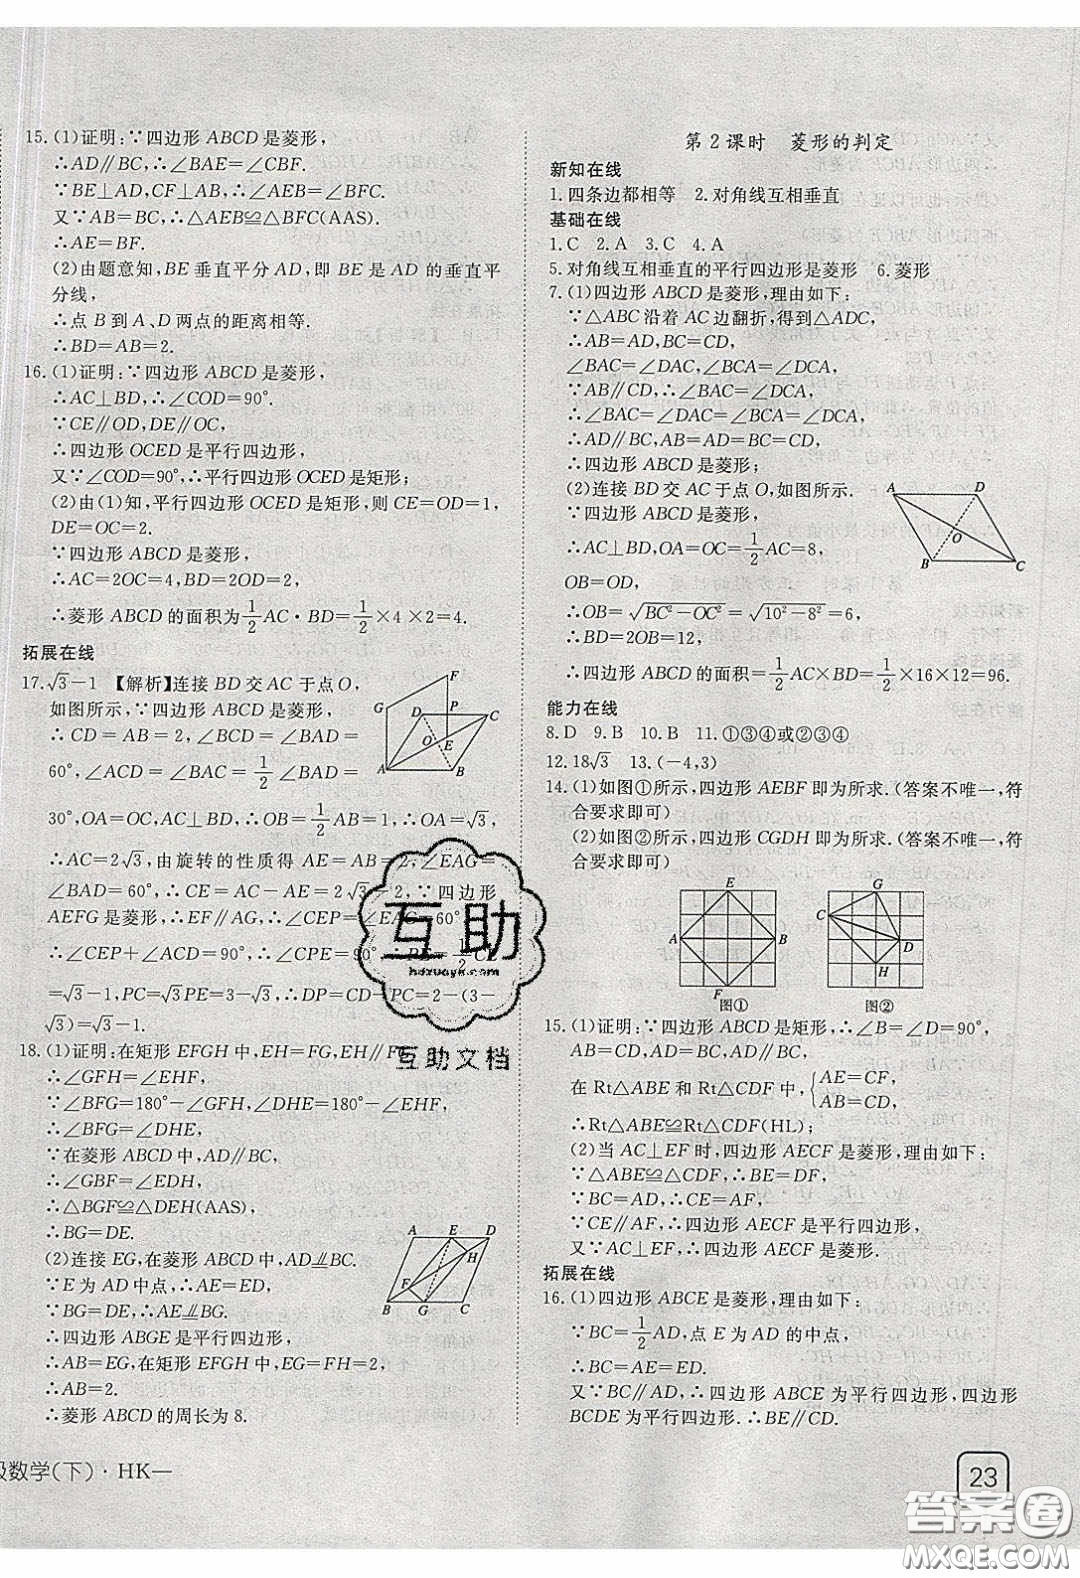 15. (1)证明:∵四边形 ABCD 是菱形,
∴AD∥BC,∴∠BAE=∠CBF.
∵BE⊥AD,CF⊥AB,∴∠AEB=∠BFC.
又∵AB=BC,∴△AEB≌△BFC(AAS).
∴AE=BF.
(2)由题意知,BE 垂直平分 AD,即 BE 是 AD 的垂直平
分线,
∴点 B 到 A、D 两点的距离相等.
∴BD=AB=2.
16. (1)证明:∵四边形 ABCD 是菱形,
∴AC⊥BD,∴∠COD=90°.
∵CE∥OD,DE∥OC,
∴四边形 OCED 是平行四边形,
又∵∠COD=90°,∴平行四边形 OCED 是矩形.
(2)由(1)知,平行四边形 OCED 是矩形,则 CE=OD=1,
DE=OC=2.
∵四边形 ABCD 是菱形,
∴AC=2OC=4,BD=2OD=2,
∴菱形 ABCD 的面积为 1/2 AC·BD=1/2×4×2=4.
拓展在线
17. √3-1 【解析】连接 BD 交 AC 于点 O,
如图所示,∵四边形 ABCD 是菱形,
∴CD=AB=2,∠BCD=∠BAD=
60°,∠ACD=∠BAC=1/2∠BAD=
30°,OA=OC,AC⊥BD,∴OB=1/2AB=1,∴OA=√3,
∴AC=2√3,由旋转的性质得 AE=AB=2,∠EAG=
∠BAD=60°,∴CE=AC-AE=2√3-2,∵四边形
AEFG 是菱形,∴EF∥AG,∴∠CEP=∠EAG=60°,
∴∠CEP+∠ACD=90°,∴∠CPE=90°,∴PE=1/2CE
=√3-1,PC=√3PE=3-√3,∴DP=CD-PC=2-(3-
√3)=√3-1.
18. (1)证明:在矩形 EFGH 中,EH=FG,EH∥FG,
∴∠GFH=∠EHF,
∵∠BFG=180°-∠GFH,∠DHE=180°-∠EHF,
∴∠BFG=∠DHE,
∵在菱形 ABCD 中,AD∥BC,
∴∠GBF=∠EDH,
∴△BGF≌△DEH(AAS),
∴BG=DE.
(2)连接 EG,在菱形 ABCD 中,AD∥=BC.
∵E 为 AD 中点,∴AE=ED,
∵BG=DE,∴AE∥=BG.
∴四边形 ABGE 是平行四边形,
∴AB=EG,在矩形 EFGH 中,EG=FH=2,
∴AB=2.
∴菱形 ABCD 的周长为 8.
级数学(下)·HK—
第 2 课时 菱形的判定
新知在线
1. 四条边都相等 2. 对角线互相垂直
基础在线
1. C 2. A 3. C 4. A
5. 对角线互相垂直的平行四边形是菱形 6. 菱形
7. (1)四边形 ABCD 是菱形,理由如下:
∵△ABC 沿着 AC 边翻折,得到△ADC,
∴AB=AD,BC=CD,
∠BAC=∠DAC,∠BCA=∠DCA,
∵AB∥CD,∴∠BAC=∠DCA,
∴∠BAC=∠DAC=∠BCA=∠DCA,
∴AD∥BC,AB=AD=BC=CD,
∴四边形 ABCD 是菱形.
(2)连接 BD 交 AC 于点 O,如图所示.
∵四边形 ABCD 是菱形,
∴AC⊥BD,OA=OC=1/2AC=8,
OB=OD,
∴OB=√(BC²-OC²)=√(10²-8²)=6,
∴BD=2OB=12,
∴四边形 ABCD 的面积=1/2AC×BD=1/2×16×12=96.
能力在线
8. D 9. B 10. B 11. ①③④或②③④
12. 18√3 13. (-4,3)
14. (1)如图①所示,四边形 AEBF 即为所求.(答案不唯一,符
合要求即可)
(2)如图②所示,四边形 CGDH 即为所求.(答案不唯一,符
合要求即可)
图① 图②
15. (1)证明:∵四边形 ABCD 是矩形,∴∠B=∠D=90°,
AB=CD,AD=BC,AD∥BC,
在 Rt△ABE 和 Rt△CDF 中,{AE=CF,
AB=CD,
∴Rt△ABE≌Rt△CDF(HL);
(2)当 AC⊥EF 时,四边形 AECF 是菱形,理由如下:
∵△ABE≌△CDF,∴BE=DF,
∵BC=AD,∴CE=AF,
∵CE∥AF,∴四边形 AECF 是平行四边形,
又∵AC⊥EF,∴四边形 AECF 是菱形.
拓展在线
16. (1)四边形 ABCE 是菱形,理由如下:
∵BC=1/2AD,点 E 为 AD 的中点,
∴BC=AE=ED.
∵BC∥AD,∴四边形 ABCE 为平行四边形,四边形
BCDE 为平行四边形.∴BE∥CD.
23
互助
hdzuoyk.com
互助文档
答案圈
MXQE.COM